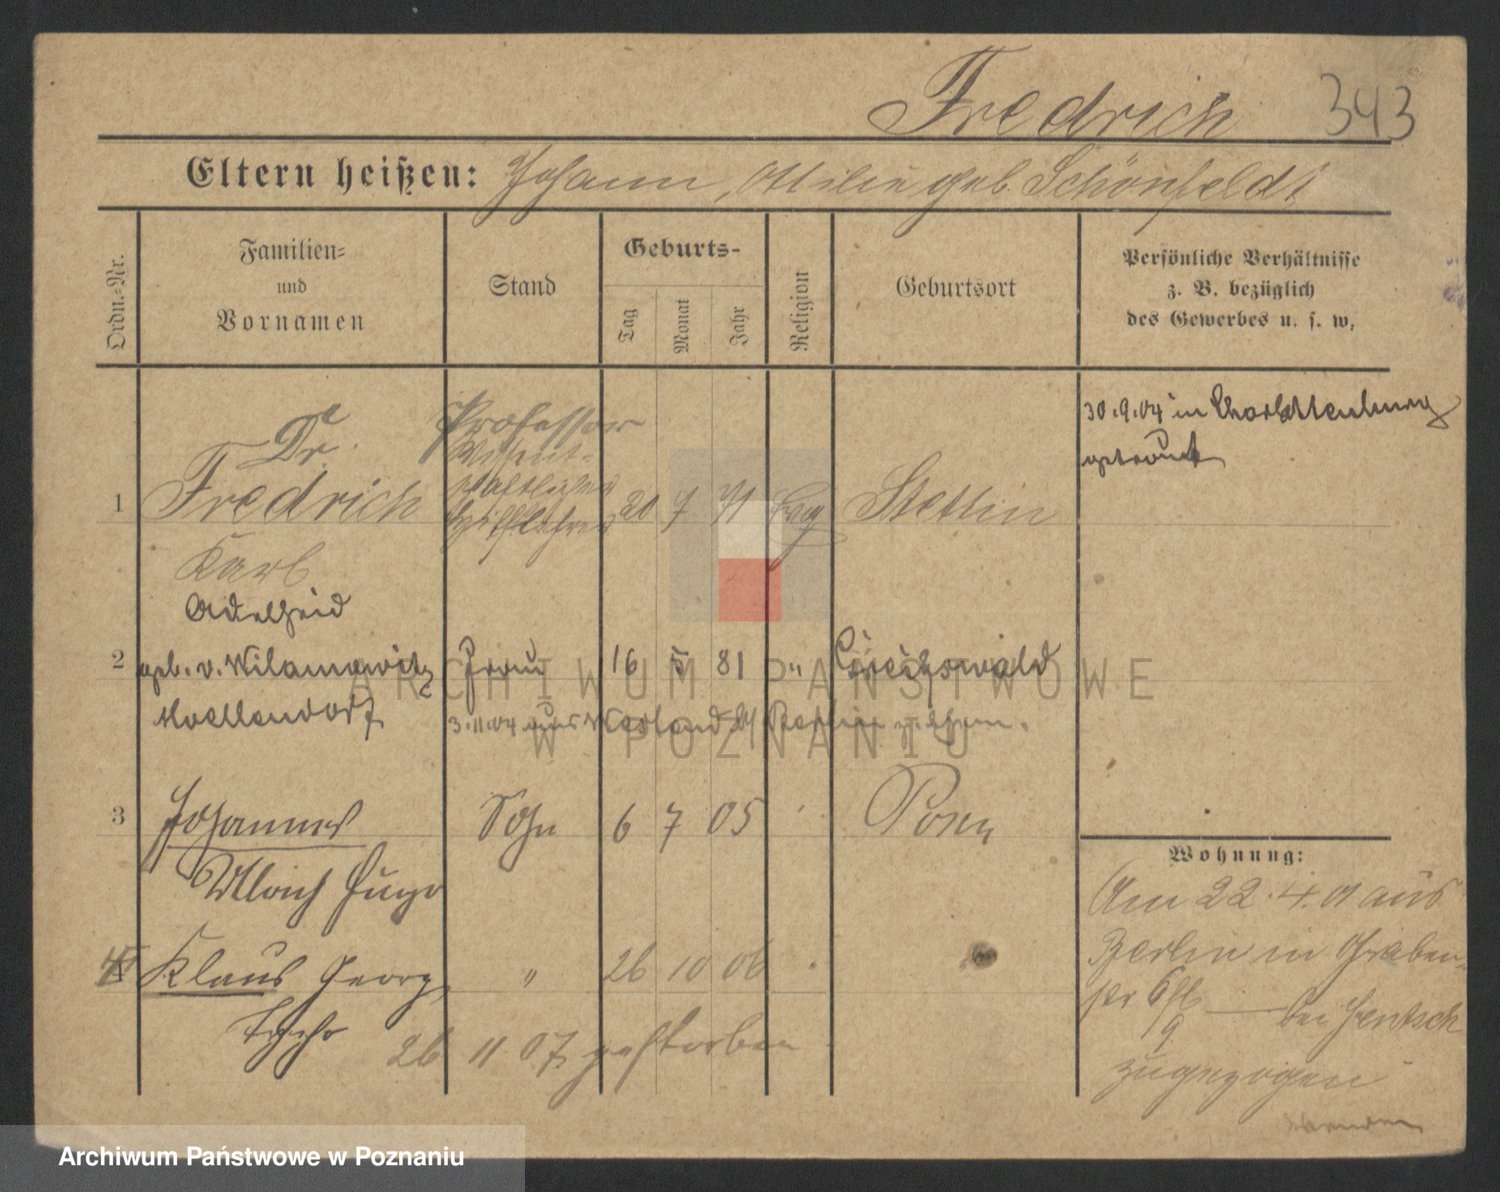 Fredrich 343
Eltern heißen: Johann, Ottilie geb. Schönfeldt
Ordn.-Nr.
Familien-
und
Vornamen
Stand
Geburts-
Tag
Monat
Jahr
Religion
Geburtsort
Persönliche Verhältnisse
z. B. bezüglich
des Gewerbes u. s. w.
30.9.04 in Charlottenburg
getraut
Dr. Professor
1 Fredrich 20 7 71 Evg Stettin
Karl
Adelheid
2 geb. v. Wilamowitz Frau 16 5 81 " Greifswald
Moellendorf 3.11.04 aus Berlin
3 Johannes Sohn 6 7 05 Posen
Ulrich Hugo
4 Klaus Georg " 26 10 06
26 11 07 gestorben
Wohnung:
Am 22.4.01 aus
Berlin in Graben-
str bei Jentsch
zugezogen
ARCHIWUM PAŃSTWOWE
W POZNANIU
Archiwum Państwowe w Poznaniu